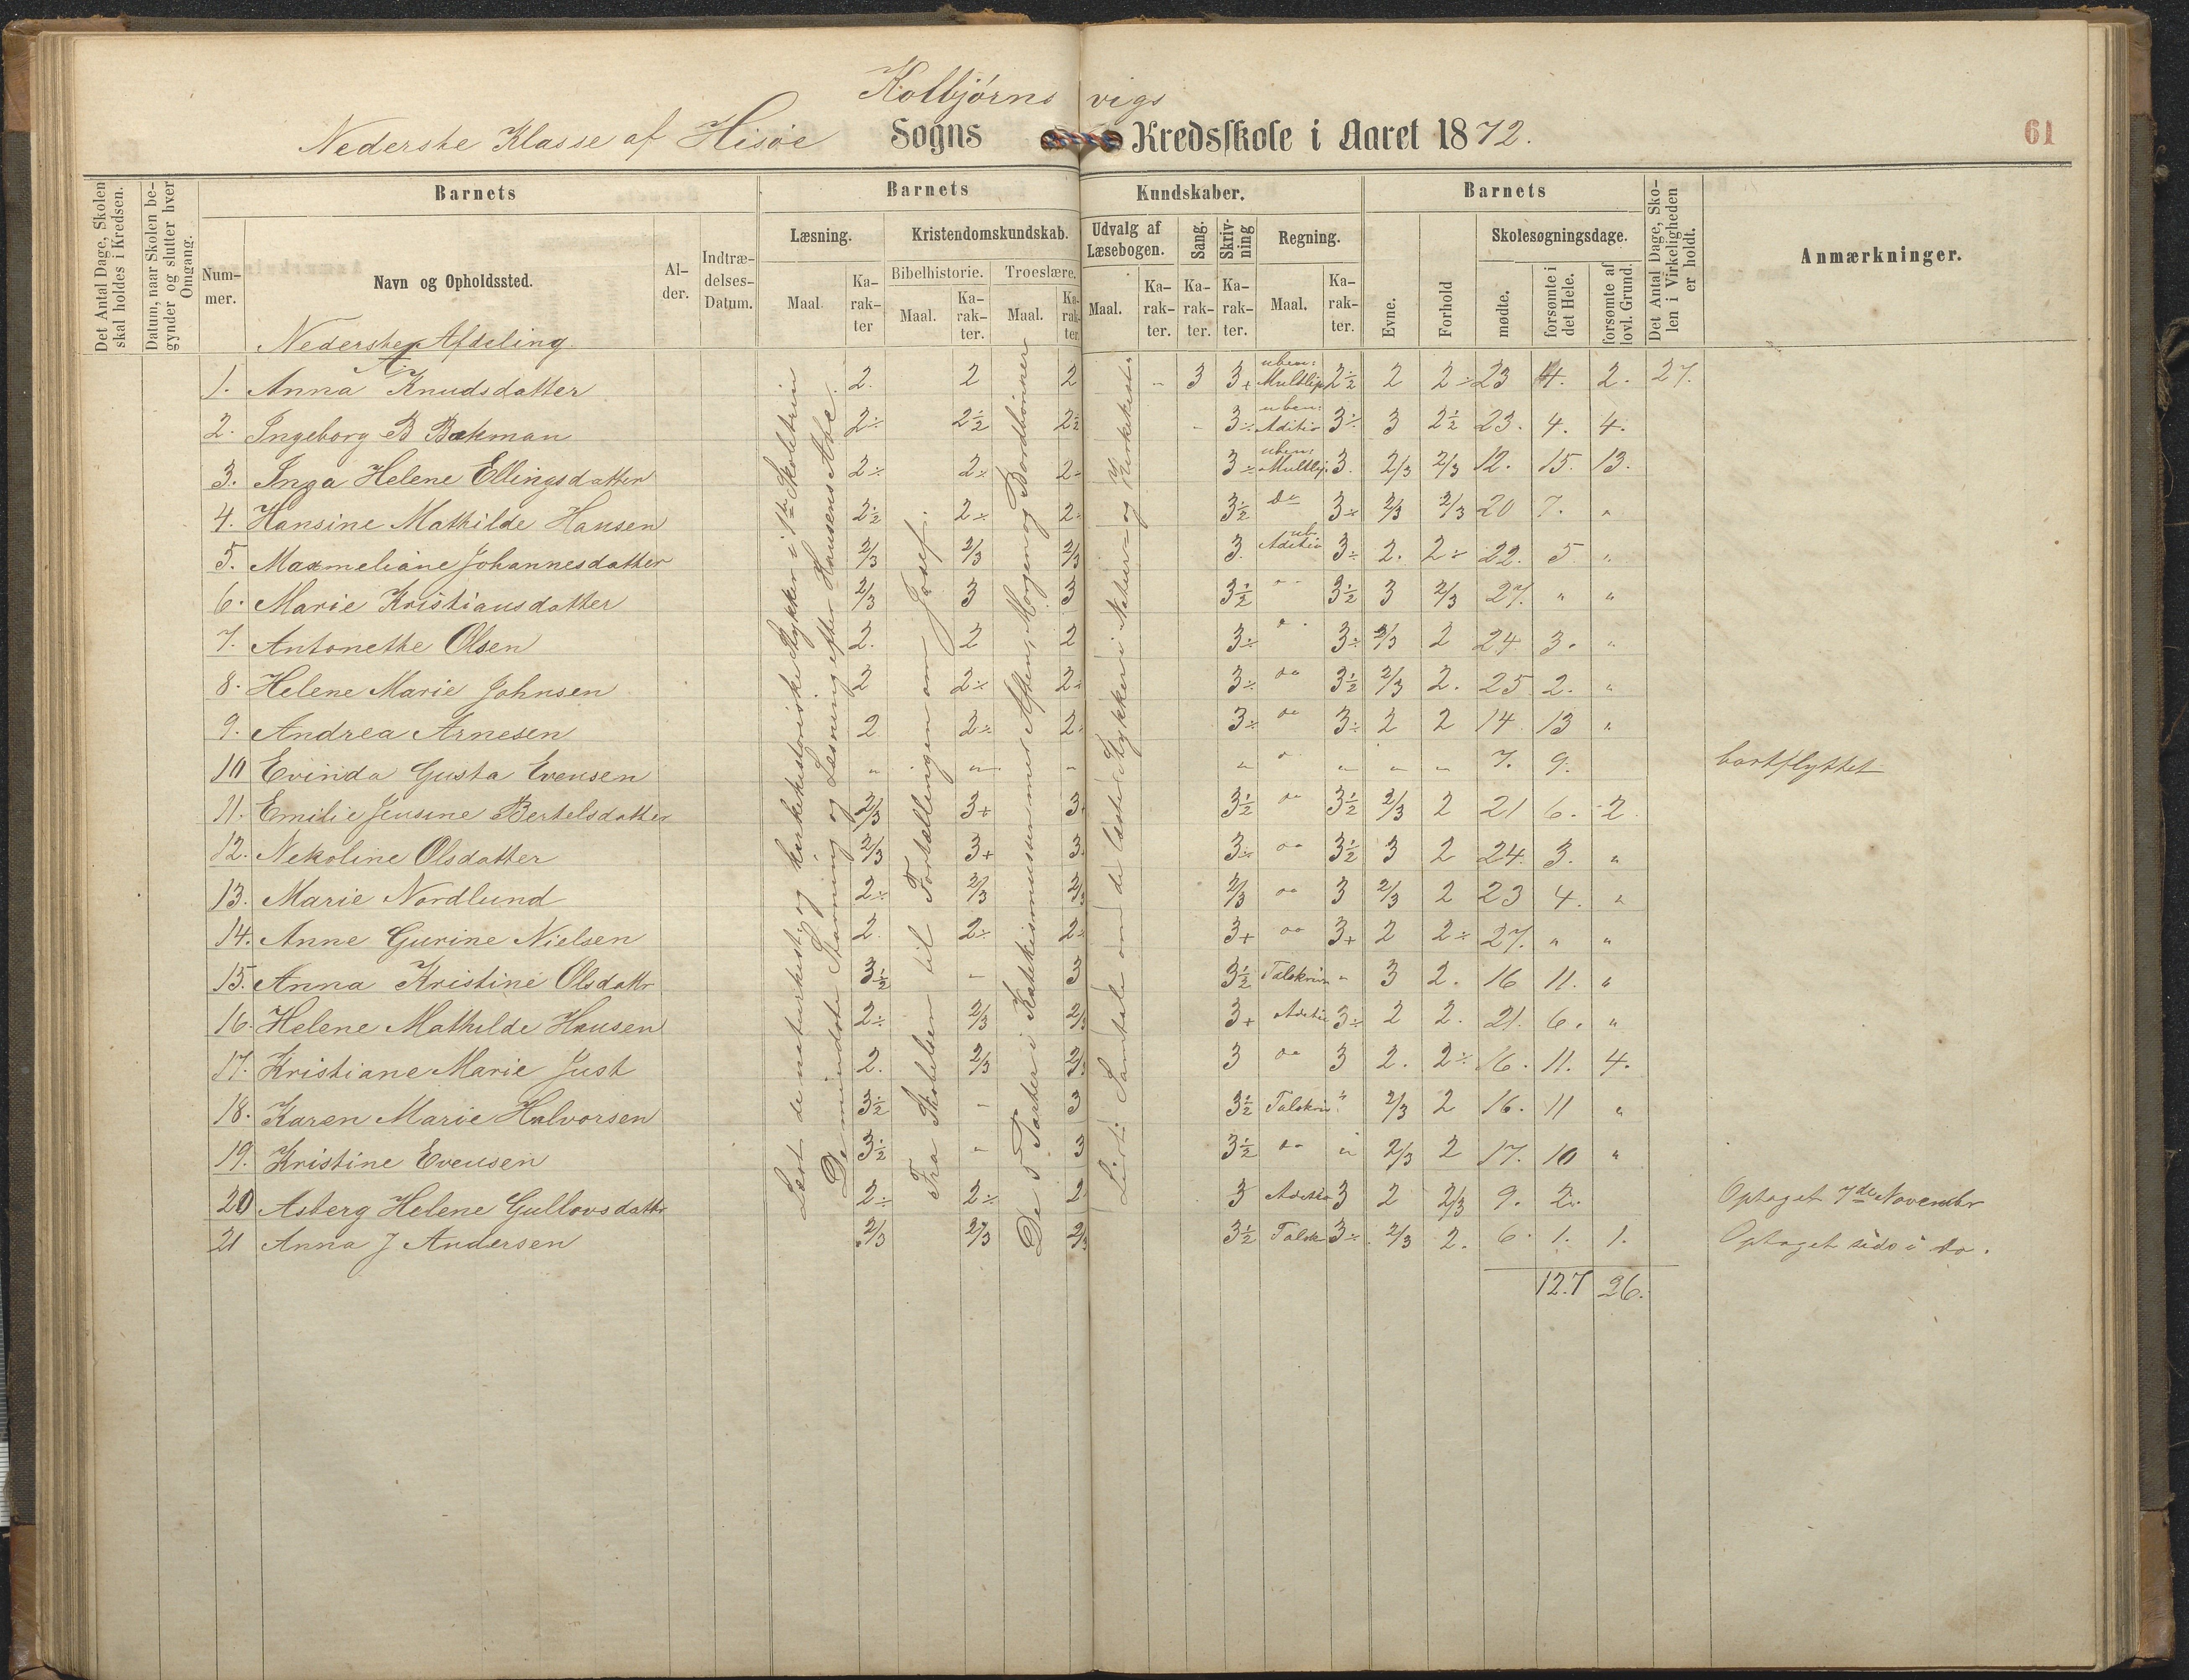 Kolbjörns vigs
Nederste Klasse af Hisöe Sogns Kredsskole i Aaret 1872.
61
Det Antal Dage, Skolen skal holdes i Kredsen.
Datum, naar Skolen begynder og slutter hver Omgang.
Barnets
Nummer.
Navn og Opholdssted.
Alder.
Indtrædelses-Datum.
Barnets Kundskaber.
Læsning.
Maal.
Karakter
Kristendomskundskab.
Bibelhistorie.
Maal.
Karakter.
Troeslære.
Maal.
Karakter.
Udvalg af Læsebogen.
Maal.
Karakter.
Sang.
Karakter.
Skrivning
Karakter.
Regning.
Maal.
Karakter.
Barnets
Evne.
Forhold
Skolesøgningsdage.
mødte.
forsømte i det Hele.
forsømte af lovl. Grund.
Det Antal Dage, Skolen i Virkeligheden er holdt.
Anmærkninger.
Nederste Afdeling
A.
1. Anna Knudsdatter 2. 2 2 " 3 3+ uben: Multlip 2÷2 2 2÷ 23 4. 2. 27.
2. Ingeborg B Bakman 2÷ 2½ 2½ 3÷ uben: Aditio 3÷ 3 2½ 23. 4. 4.
3. Inga Helene Ellingsdatter 2÷ 2÷ 2÷ 3÷ uben: Multlip 3. 2/3 2/3 12. 15. 13.
4. Hansine Mathilde Hansen 2½ 2÷ 2÷ 3½ do 3÷ 2/3 2/3 20 7. "
5. Maxmeliane Johannesdatter 2/3 2/3 2/3 3. ub. Aditio 3÷ 2. 2÷ 22. 5 "
6. Marie Kristiansdatter 2/3 3 3 3½ " 3½ 3 2/3 27. " "
7. Antonette Olsen 2. 2 2 3÷ " 3÷ 2/3 2 24 3. "
8. Helene Marie Johnsen 2 2÷ 2÷ 3÷ do 3½ 2/3 2. 25 2. "
9. Andrea Arnesen 2 2÷ 2÷ 3÷ do 3÷ 2 2 14 13 "
10 Evinda Gusta Evensen " " " " " " " " 7. 9. bortflyttet
11. Emilie Jensine Bertelsdatter 2/3 3+ 3+ 3½ do 3½ 2/3 2 21 6. 2.
12. Nekoline Olsdatter 2/3 3+ 3 3÷ do 3½ 3 2 24. 3. "
13. Marie Nordlund 2÷ 2/3 2/3 2/3 do 3 2/3 2 23 4. "
14. Anne Gurine Nielsen 2. 2÷ 2÷ 3+ do 3+ 2 2÷ 27. " "
15. Anna Kristine Olsdatr 3½ " 3 3½ Talskriv " 3 2. 16 11. "
16. Helene Mathilde Hansen 2÷ 2/3 2/3 3+ Aditio 3÷ 2 2. 21. 6. "
17. Kristiane Marie Just 2. 2/3 2/3 3 do 3 2. 2÷ 16. 11. 4.
18. Karen Marie Halvorsen 3½ " 3 3½ Talskriv " 2/3 2 16. 11 "
19. Kristine Evensen 3½ " 3 3½ do " 2/3 2 17. 10 "
20 Asberg Helene Gullovsdatter 2÷ 2÷ 2 3 Aditio 3 2 2/3 9. 2. Optaget 7de Novembr
21 Anna J Andersen 2/3 2/3 2/3 3½ Talskr 3÷ 2/3 2. 6. 1. 1. Optaget sids i do.
127 26.
Læst de naturhist. og kirkehistoriske Stykker i 1ste Skoletrin
De mindste Stavning og Læsning efter Hansens Abc.
Fra Skabelsen til Fortællingen om Josef.
De 5 Parter i Katekismussen med Aften, Morgen og Bordbönner
Lidt Samtale om de læste Stykker i Natur- og Kirkehist.